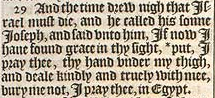 29 And the time drew nigh that Is-
rael must die, and he called his sonne
Joseph, and said vnto him, If now I
haue found grace in thy sight, *put, I
pray thee, thy hand vnder my thigh,
and deale kindly and truely with mee,
bury me not, I pray thee, in Egypt.